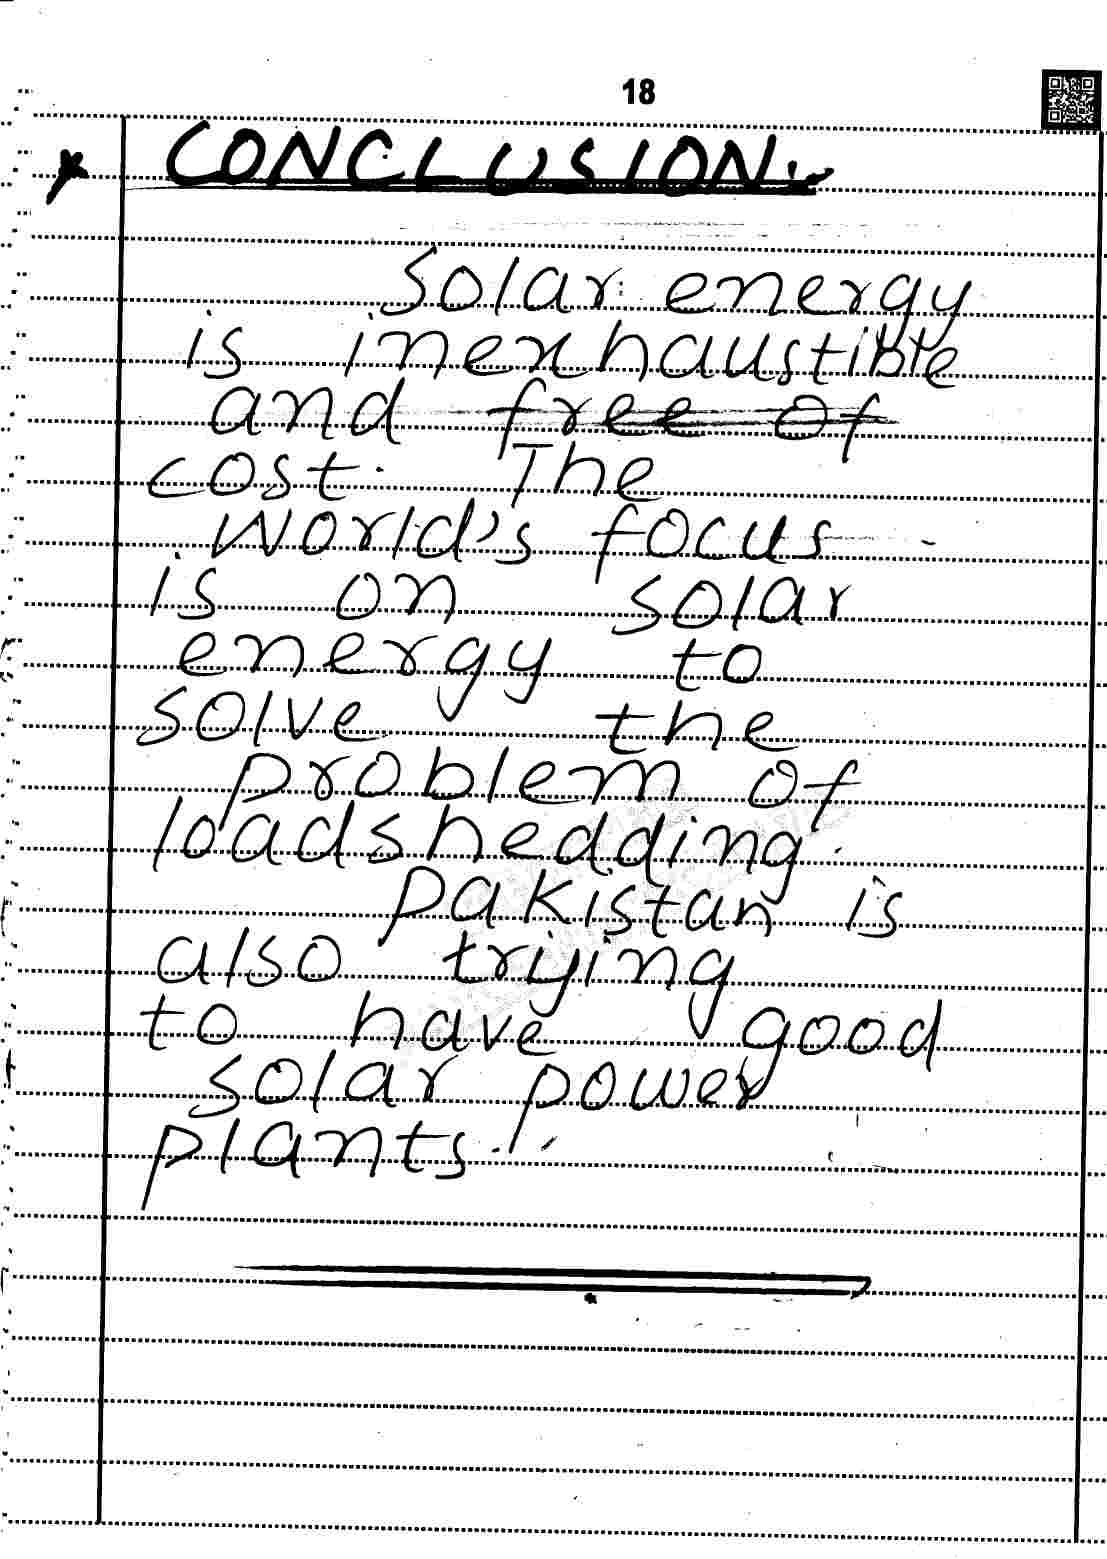 18
* CONCLUSION:-
Solar energy
is inexhaustible
and free of
cost. The
World's focus
is on solar
energy to
solve the
problem of
loadshedding.
Pakistan is
also trying
to have good
solar power
plants.